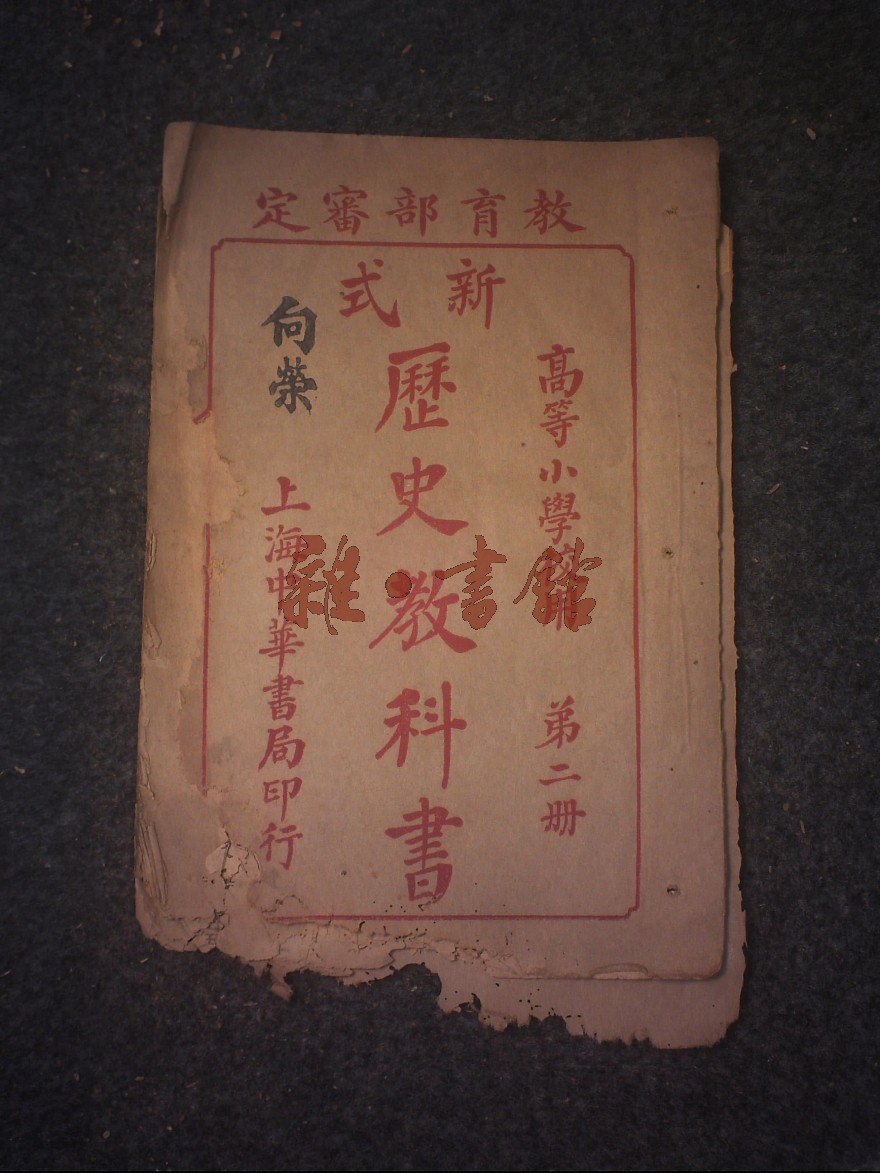 教育部審定
新式
高等小學校用 第二册
歷史教科書
向榮
上海中華書局印行
雜·書館